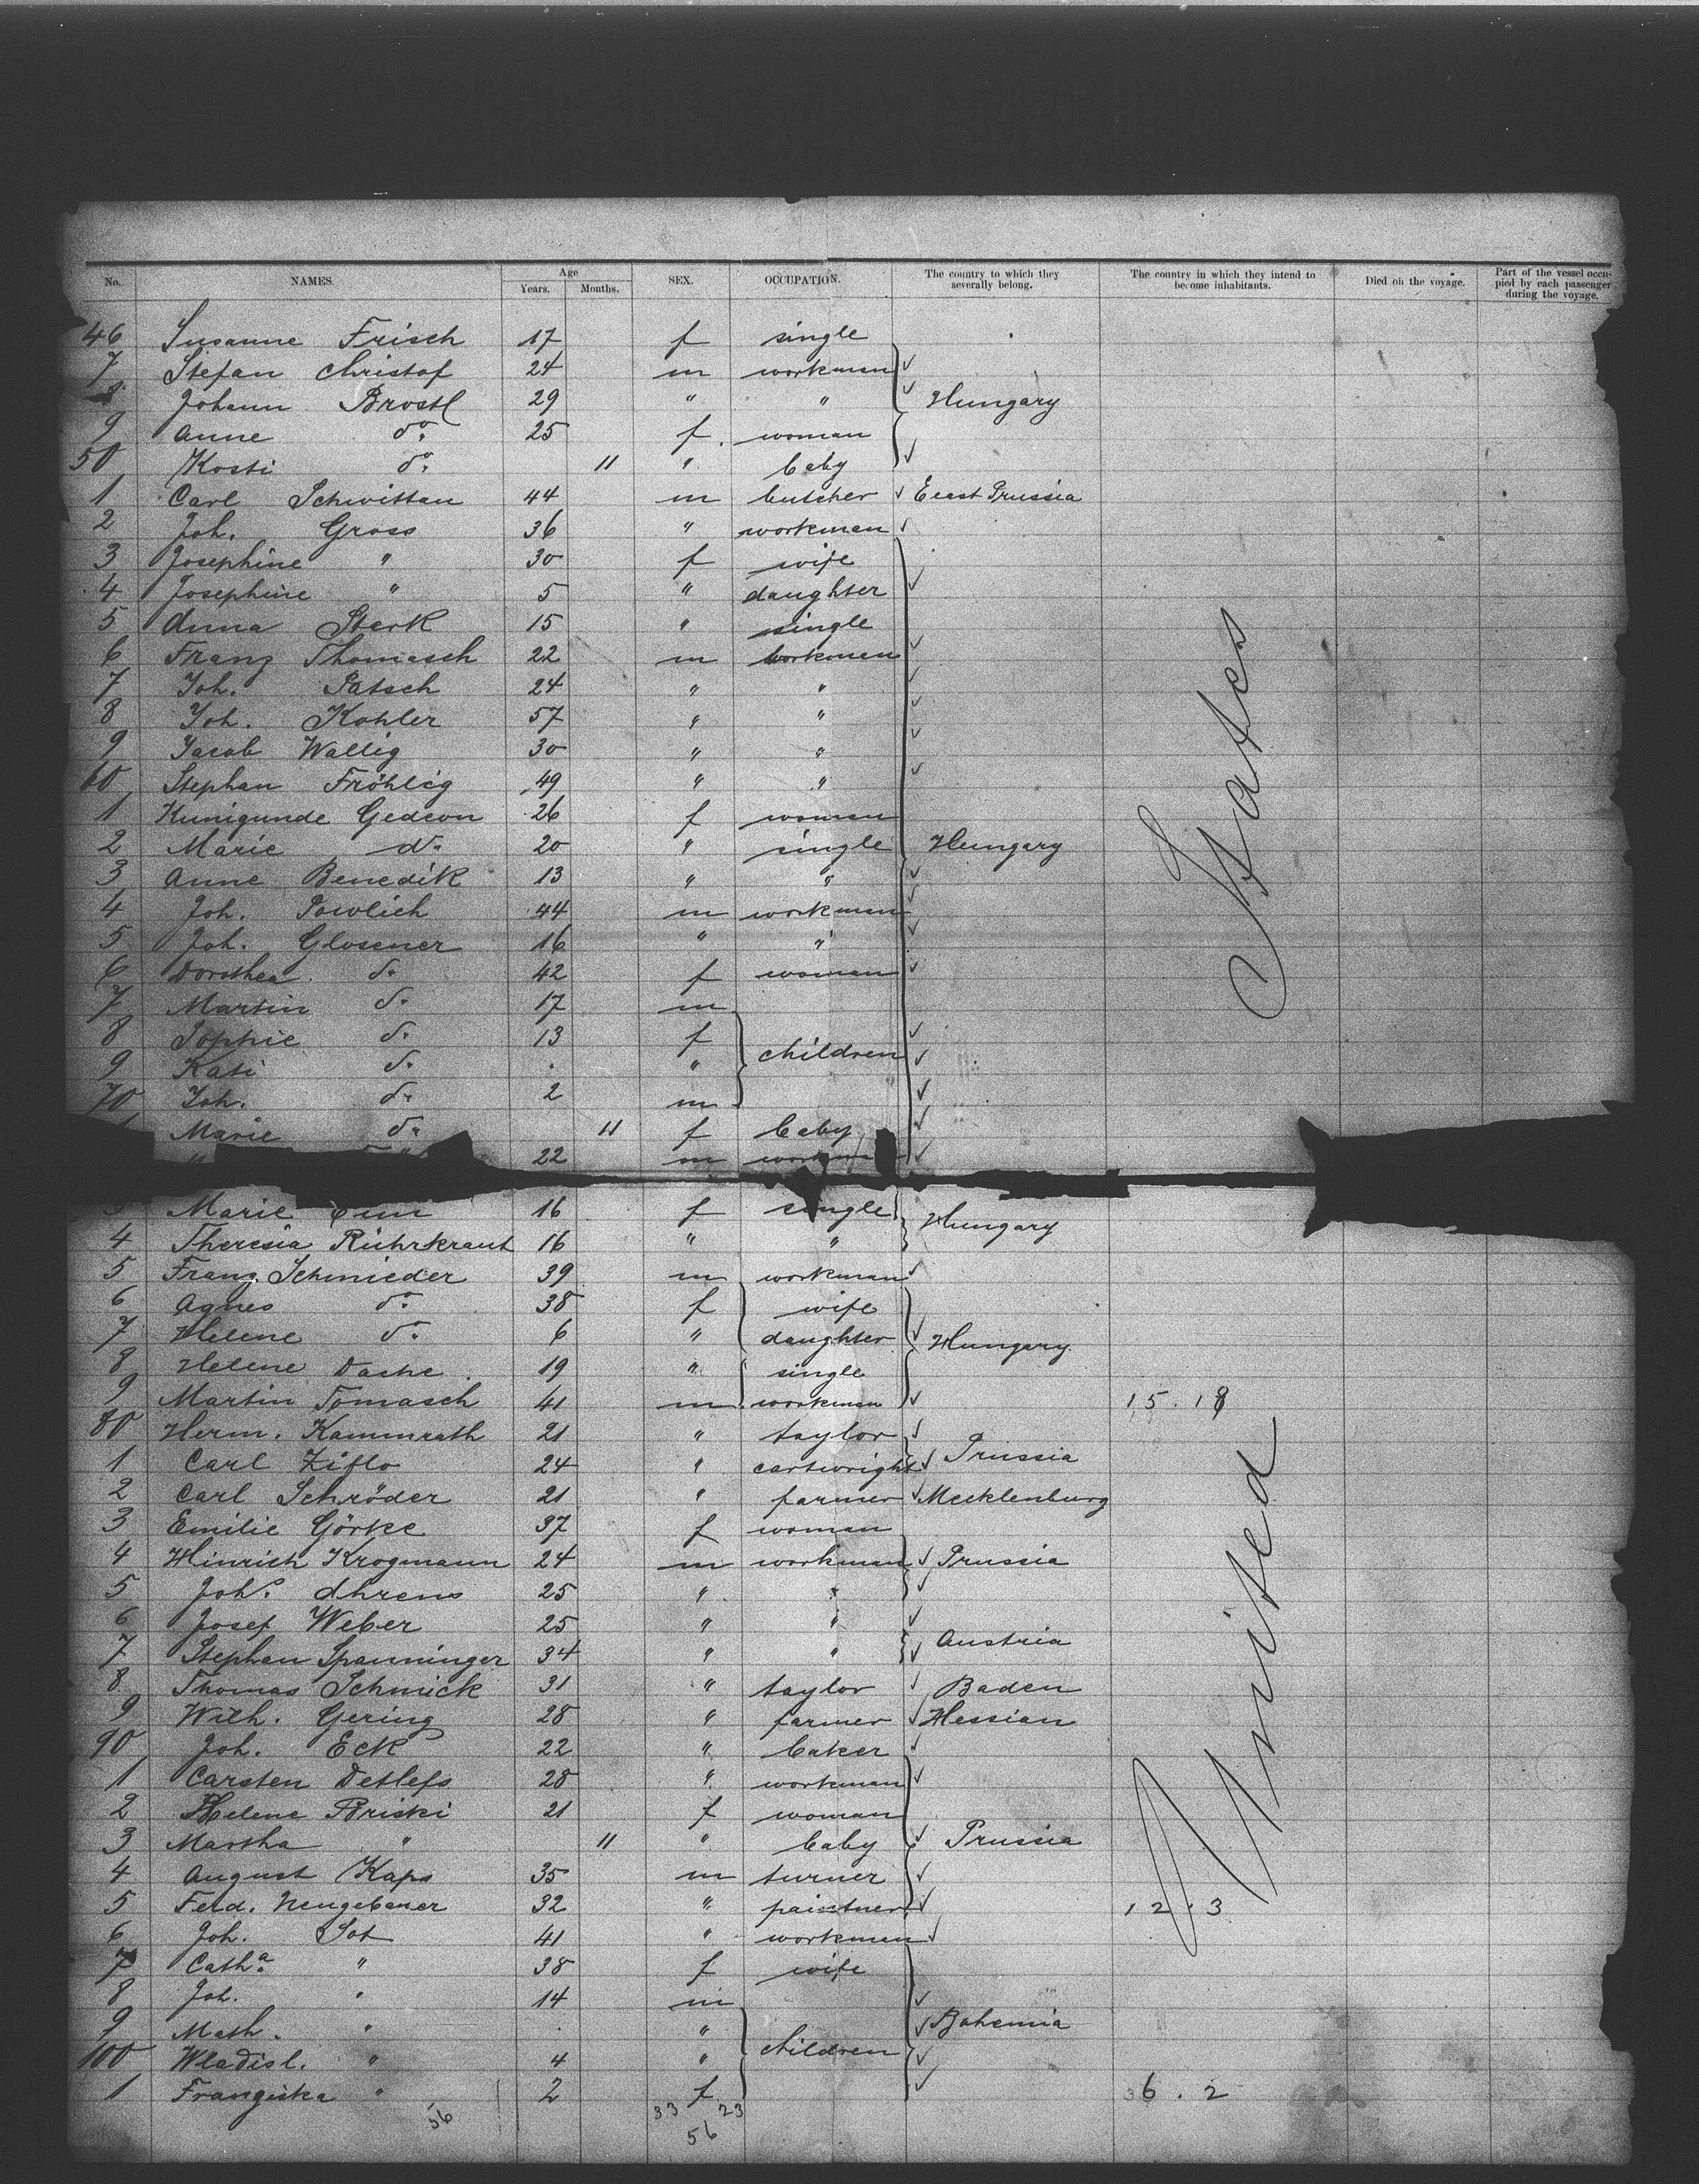 No. NAMES. Age Years. Months. SEX. OCCUPATION. The country to which they severally belong. The country in which they intend to become inhabitants. Died on the voyage. Part of the vessel occupied by each passenger during the voyage.
46 Susanne Frisch 17 f single
7 Stefan Christof 24 m workman
8 Johann Brostl 29 " " Hungary
9 Anne do 25 f. woman
50 Kosti do 11 " baby
1 Carl Schwittau 44 m butcher Eeast Prussia
2 Joh. Gross 36 " workman
3 Josephine " 30 f wife
4 Josephine " 5 " daughter
5 Anna Sterk 15 " single
6 Franz Thomasch 22 m workman
7 Joh. Patsch 24 " "
8 Joh. Kohler 57 " "
9 Jacob Wallig 30 " "
60 Stephan Fröhlig 49 " "
1 Kunigunde Gedeon 26 f woman
2 Marie do 20 " single Hungary
3 Anne Benedik 13 " "
4 Joh. Pawlich 44 m workman
5 Joh. Glosener 16 " "
6 Dorothea do 42 f woman
7 Martin do 17 m
8 Sophie do 13 f children
9 Kati do . "
70 Joh. do 2 m
Marie do 11 f baby
22 m workman
3 Marie 16 f single Hungary
4 Theresia Rührkraut 16 " "
5 Franz Schmieder 39 m workman
6 Agnes do 38 f wife
7 Helene do 6 " daughter Hungary.
8 Helene Dache 19 " single
9 Martin Tomasch 41 m workman 15.18
80 Herm. Kammrath 21 " taylor
1 Carl Ziflo 24 " cartwright Prussia
2 Carl Schröder 21 " farmer Mecklenburg
3 Emilie Görke 37 f woman
4 Hinrich Krogmann 24 m workman Prussia
5 Johs. Ahrens 25 " "
6 Josef Weber 25 " "
7 Stephan Spanninger 34 " " Austria
8 Thomas Schmick 31 " taylor Baden
9 Wilh. Gering 28 " farmer Hessian
90 Joh. Eck 22 " baker
1 Carsten Detlefs 28 " workman
2 Helene Briski 21 f woman
3 Martha " 11 " baby Prussia
4 August Kaps 35 m turner
5 Ferd. Neugebauer 32 " paintner 12.3
6 Joh. Sot 41 " workman
7 Catha. " 38 f wife
8 Joh. " 14 m
9 Math. " . " children Bohemia
100 Wladisl. " 4 "
1 Franziska " 2 f 36.2
56 33 23
56
United States